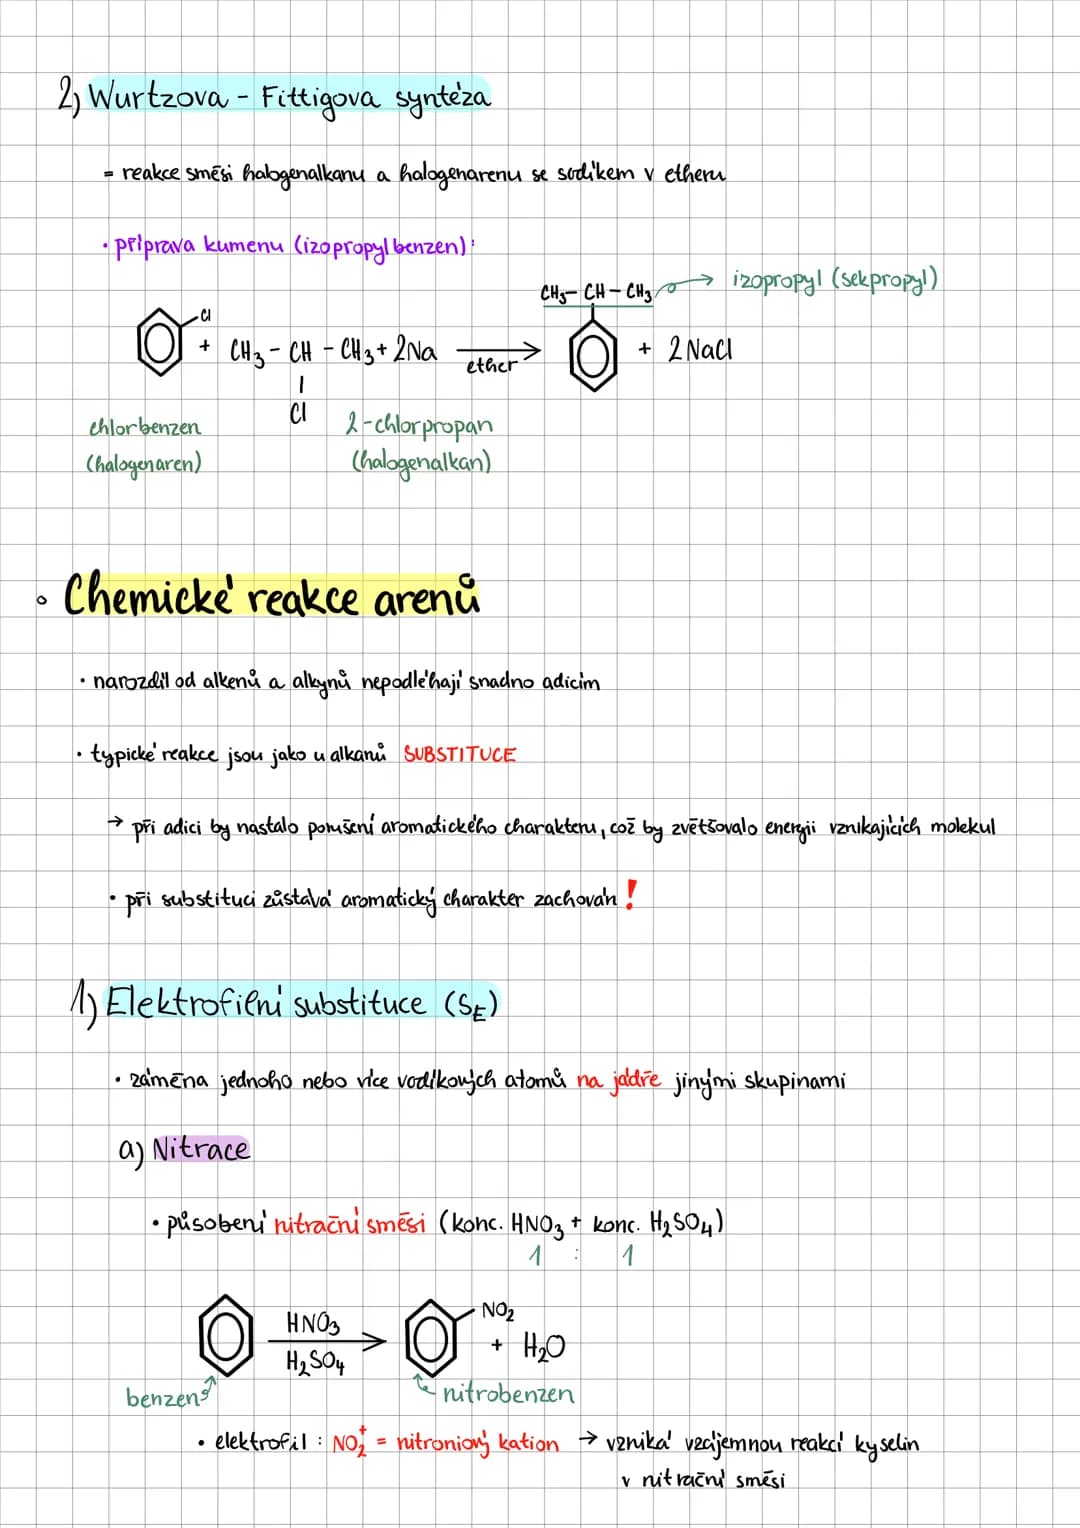 2) Wurtzova - Fittigova syntéza
= reakce směsi halogenalkanu a halogenarenu se sodíkem v etheru
• příprava kumenu (izopropylbenzen):
CH3 - CH - CH3 → izopropyl (sekpropyl)
Cl
+ CH3 - CH - CH3 + 2Na → ether + 2 NaCl
Cl
chlorbenzen 2-chlorpropan
(halogenaren) (halogenalkan)
• Chemické reakce arenů
• narozdíl od alkenů a alkynů nepodléhají snadno adicím
• typické reakce jsou jako u alkanů SUBSTITUCE
→ při adici by nastalo porušení aromatického charakteru, což by zvětšovalo energii vznikajících molekul
• při substituci zůstává aromatický charakter zachován !
1) Elektrofilní substituce (SE)
• záměna jednoho nebo více vodíkových atomů na jádře jinými skupinami
a) Nitrace
• působení nitrační směsi (konc. HNO3 + konc. H2SO4)
1 : 1
HNO3 NO2
H2SO4 → + H2O
benzen nitrobenzen
• elektrofil : NO2+ = nitroniový kation → vzniká vzájemnou reakcí kyselin
v nitrační směsi